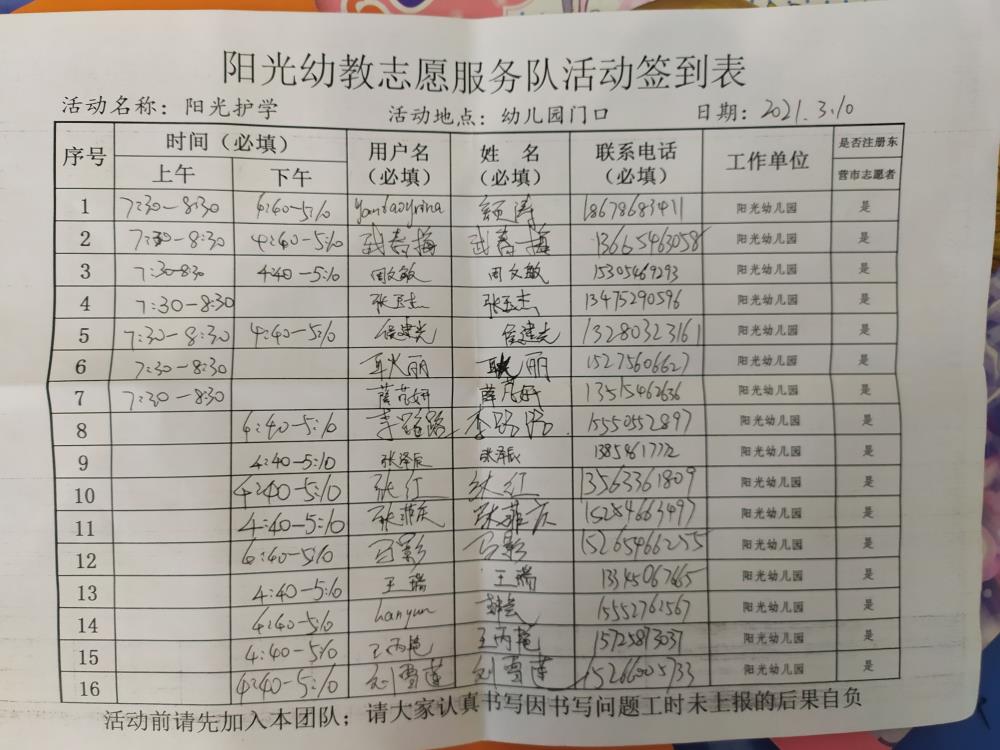 阳光幼教志愿服务队活动签到表
活动名称：阳光护学 活动地点：幼儿园门口 日期：2021.3.10
序号 时间（必填） 用户名（必填） 姓 名（必填） 联系电话（必填） 工作单位 是否注册东营市志愿者
上午 下午
1 7:30-8:30 4:40-5:10 yantaoyrina 颜涛 18678683411 阳光幼儿园 是
2 7:30-8:30 4:40-5:10 武春梅 武春梅 13665463058 阳光幼儿园 是
3 7:30-8:30 4:40-5:10 周文敏 周文敏 15305469293 阳光幼儿园 是
4 7:30-8:30 张玉杰 张玉杰 13475290596 阳光幼儿园 是
5 7:30-8:30 4:40-5:10 侯建光 侯建光 13280323161 阳光幼儿园 是
6 7:30-8:30 耿火丽 丽 15275606627 阳光幼儿园 是
7 7:30-8:30 薛范妍 薛范妍 13515462636 阳光幼儿园 是
8 4:40-5:10 李路路 李路路 15550552897 阳光幼儿园 是
9 4:40-5:10 张泽辰 张泽辰 13854617712 阳光幼儿园 是
10 4:40-5:10 张红 张红 13563361809 阳光幼儿园 是
11 4:40-5:10 张菲 张菲 15254663497 阳光幼儿园 是
12 4:40-5:10 马影 马影 15265466255 阳光幼儿园 是
13 4:40-5:10 王瑞 王瑞 13345067665 阳光幼儿园 是
14 4:40-5:10 hanyun 15552762567 阳光幼儿园 是
15 4:40-5:10 王丙艳 王丙艳 15725873031 阳光幼儿园 是
16 4:40-5:10 刘雪莲 刘雪莲 15266005133 阳光幼儿园 是
活动前请先加入本团队；请大家认真书写因书写问题工时未上报的后果自负